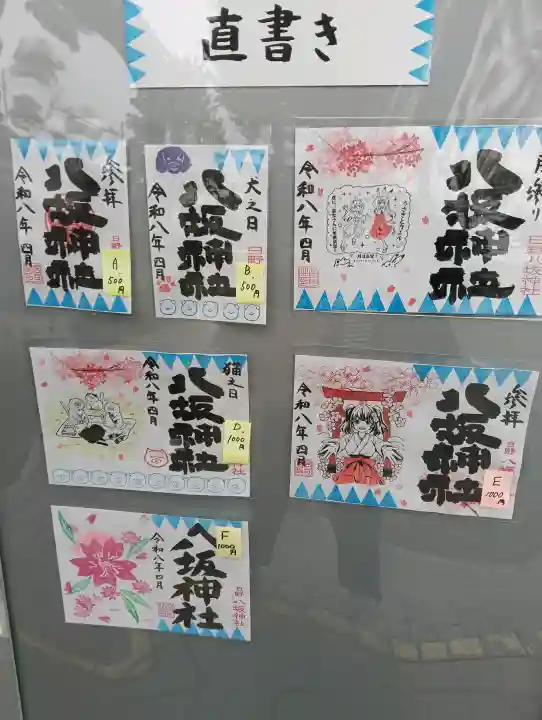 直書き
参拝
八坂神社
日野
令和八年 四月
A.
500円
犬之日
八坂神社
日野
令和八年 四月
B.
500円
月参り
八坂神社
日野八坂神社
令和八年 四月
猫之日
八坂神社
社
令和八年 四月
D.
1000円
参拝
八坂神社
日野 八
令和八年 四月
E
1000円
八坂神社
日野 八坂神社
令和八年四月
F
1000円